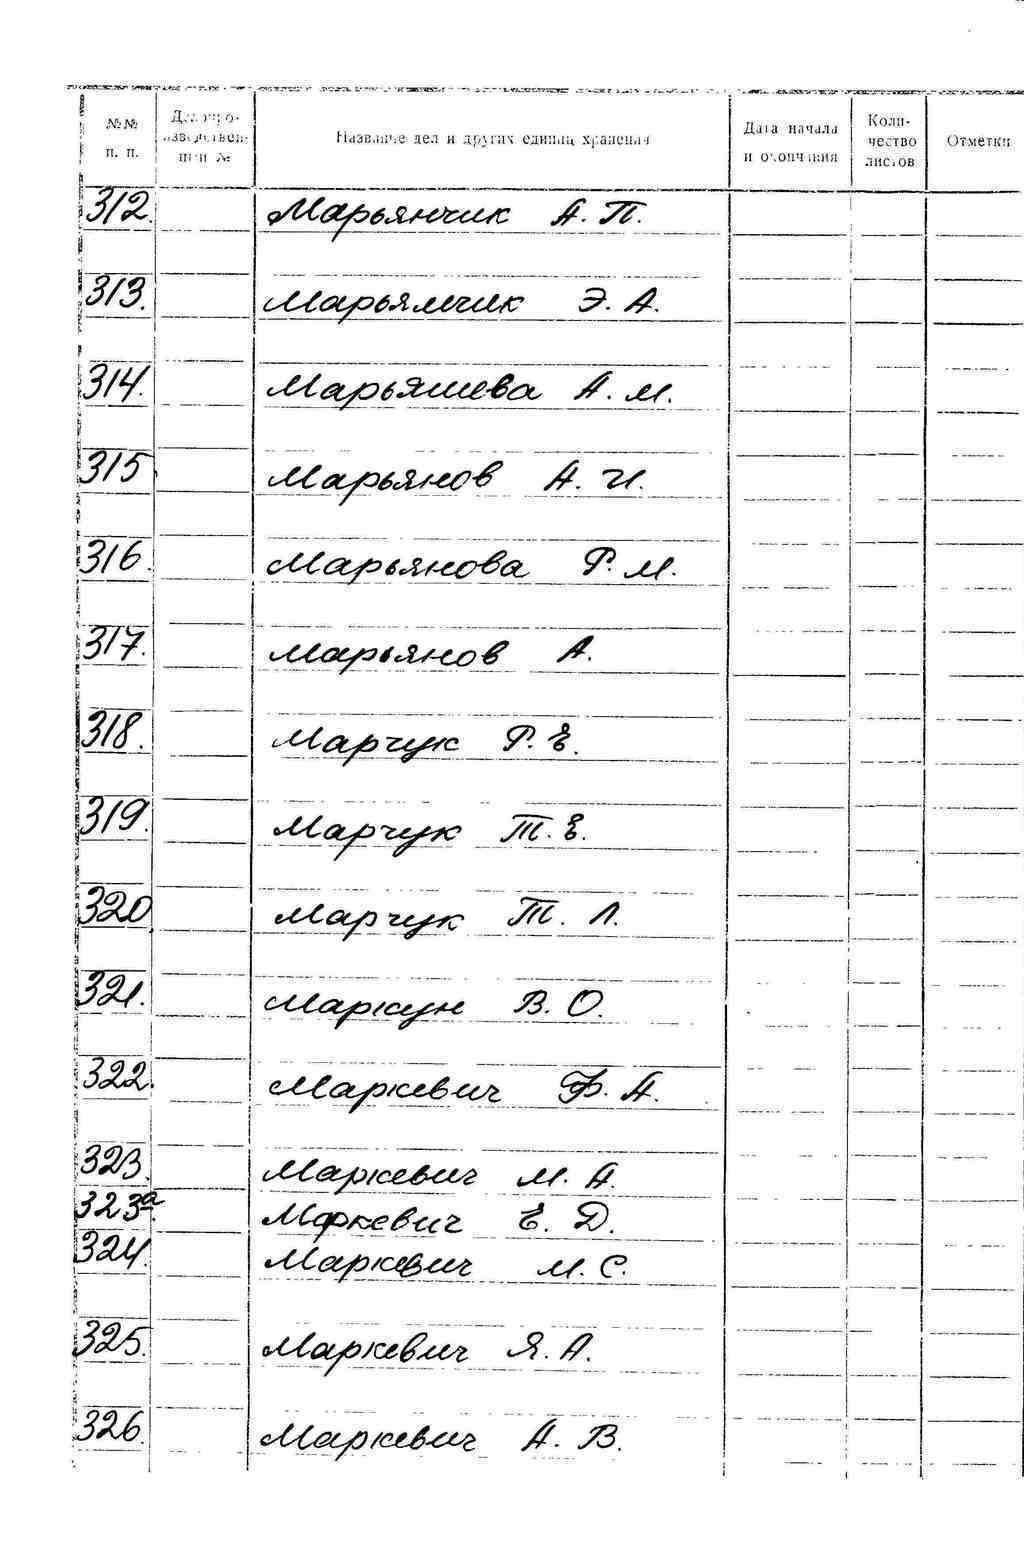 №№ п. п. Делопро- изводствен- ный № Название дел и других единиц хранения Дата начала и окончания Коли- чество листов Отметки
312. Марьянчик А. П.
313. Марьямчик Э. А.
314. Марьяшева А. М.
315 Марьянов А. И.
316. Марьянова Р. М.
317. Марьянов А.
318. Марчук Р. Е.
319. Марчук Т. Е.
320 Марчук Т. Л.
321. Маркун В. О.
322. Маркевич Ф. А.
323. Маркевич М. А.
323а. Маркевич Е. Д.
324. Маркевич М. С.
325. Маркевич Я. А.
326. Маркевич А. В.